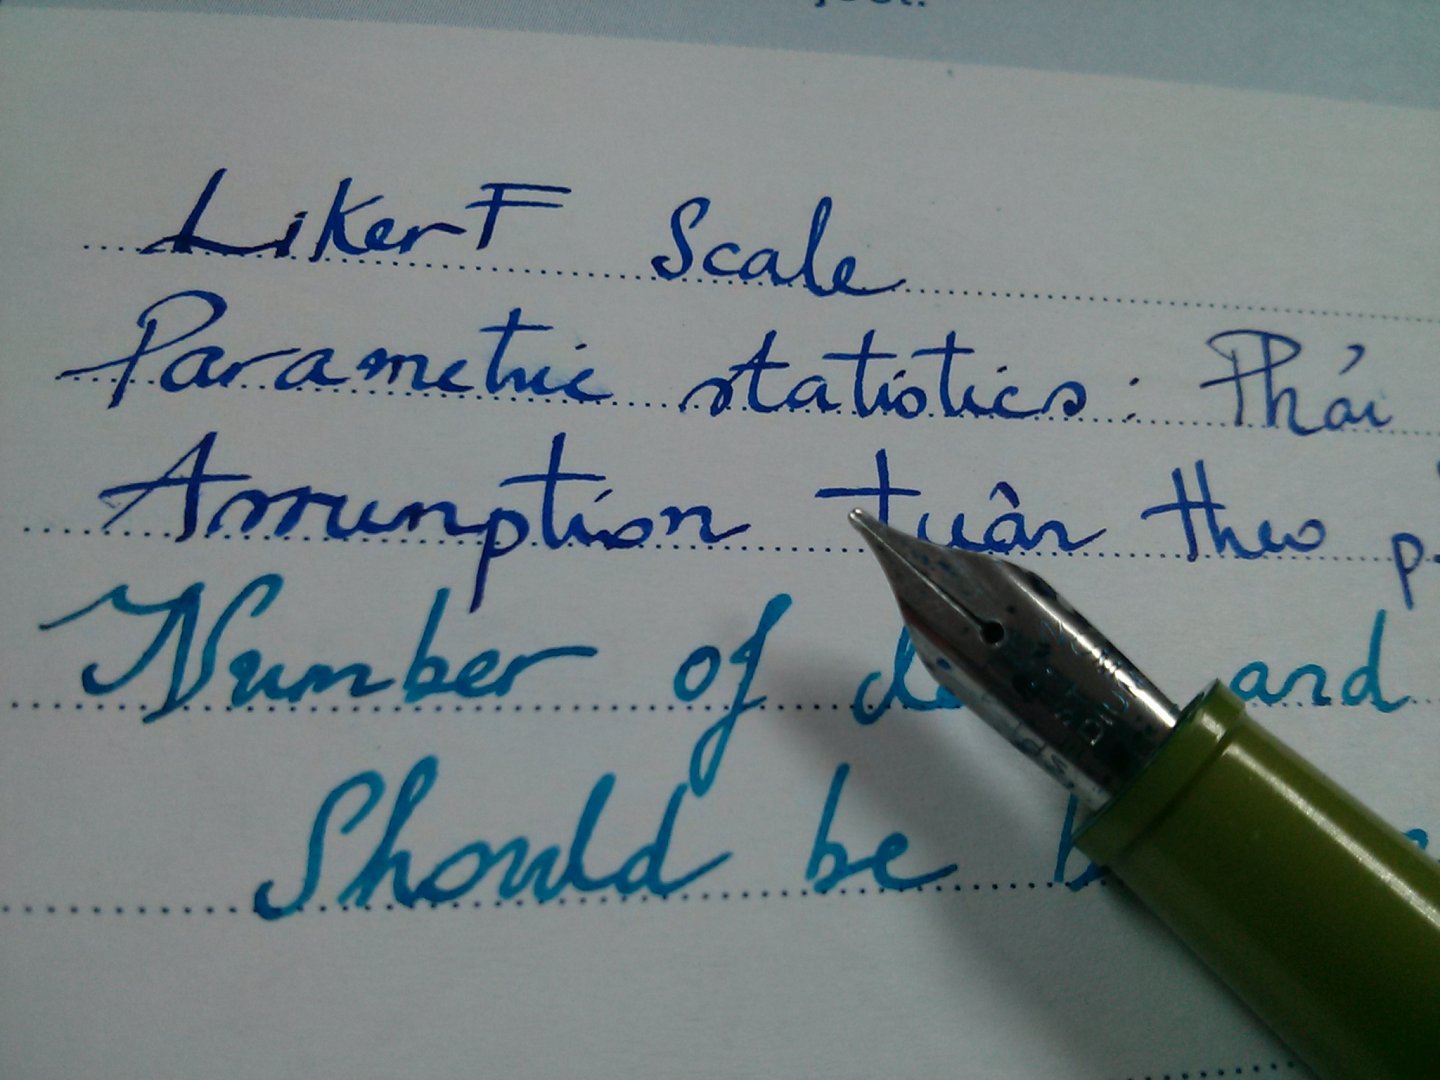 Likert Scale
Parametric statistics: Phải
Assumption tuân theo
Number of and
Should be